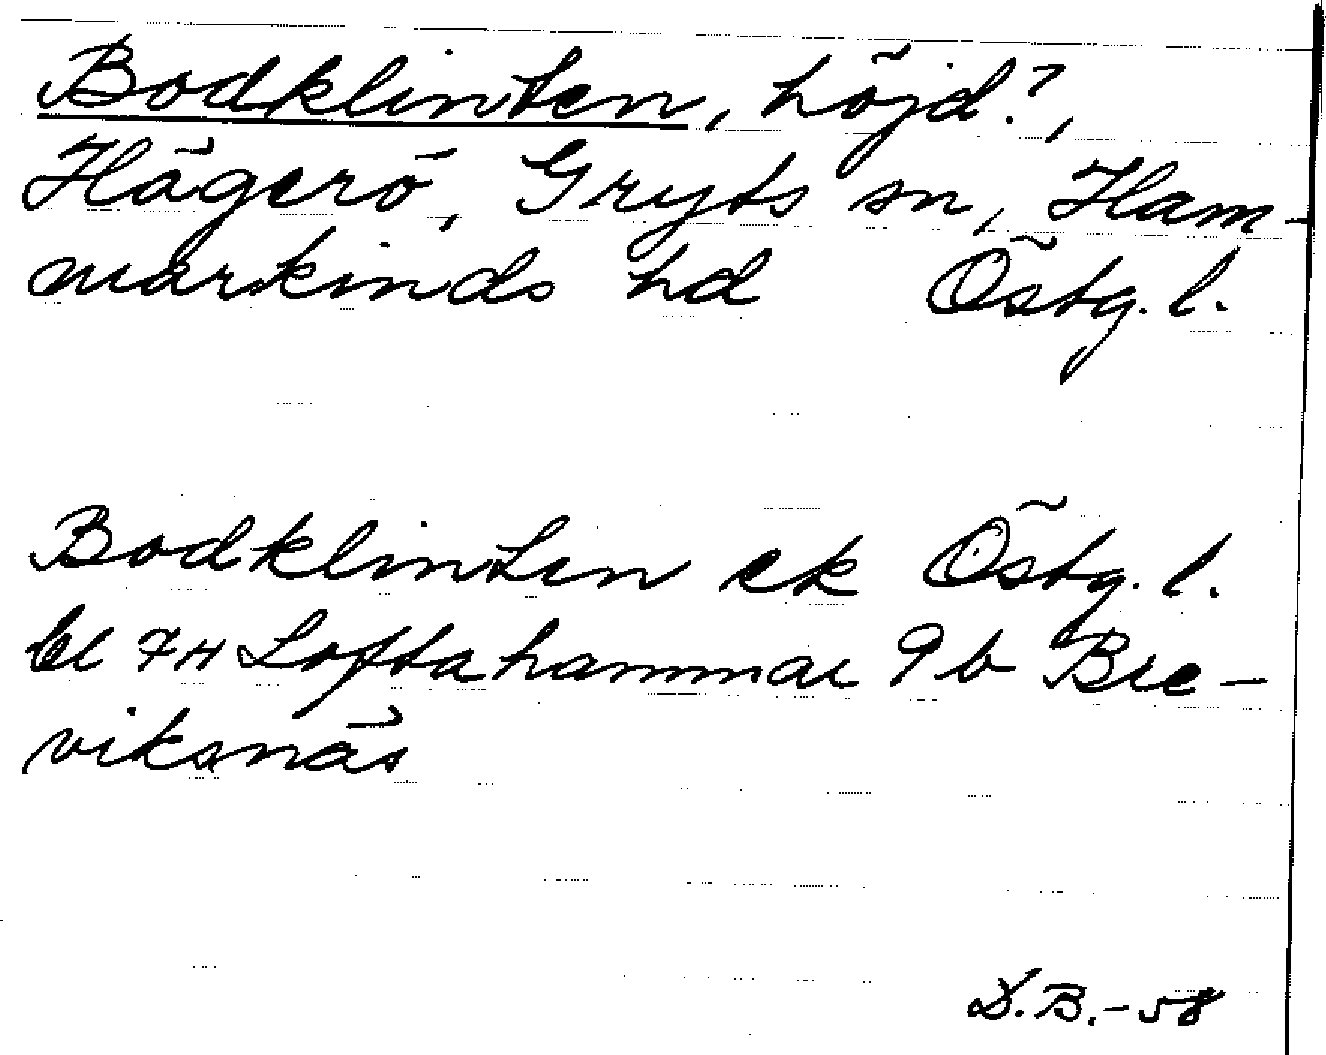 Bodklinten, höjd?,
Hägerö, Gryts sn, Ham-
markinds hd Östg. l.
Bodklinten ek Östg. l.
bl 7H Loftahammar 9b Bre-
viksnäs
D.B.-58